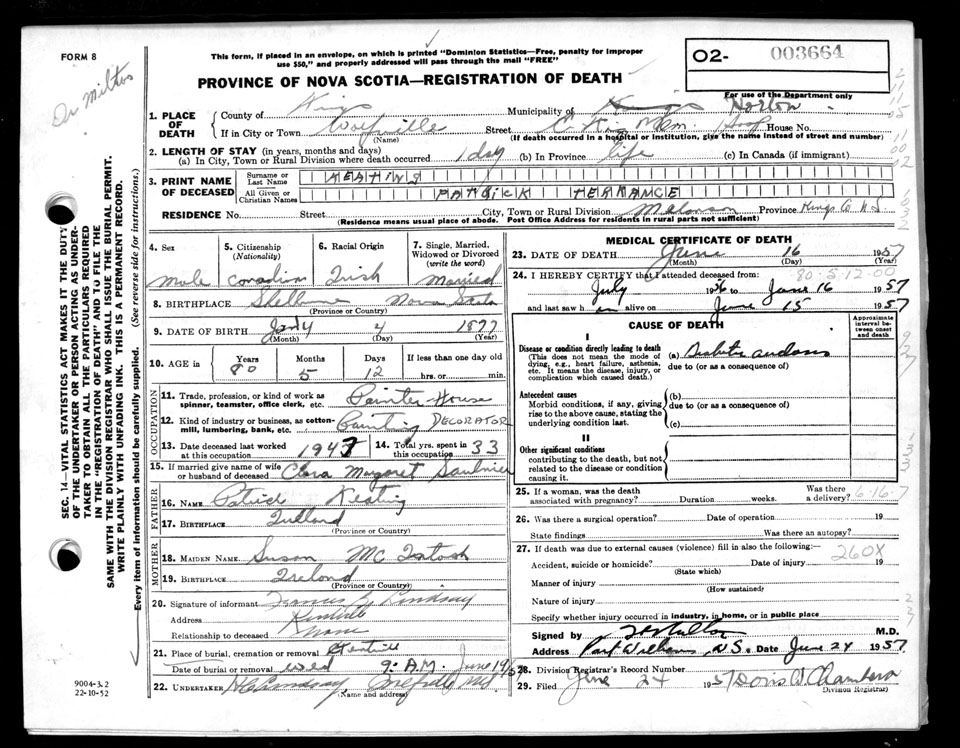 FORM 8
This form, if placed in an envelope, on which is printed "Dominion Statistics—Free, penalty for improper
use $50," and properly addressed will pass through the mail "FREE"
O2- 003664
For use of the Department only
PROVINCE OF NOVA SCOTIA—REGISTRATION OF DEATH
Dr Milton
SEC. 14—VITAL STATISTICS ACT MAKES IT THE DUTY
OF THE UNDERTAKER OR PERSON ACTING AS UNDER-
TAKER TO OBTAIN ALL THE PARTICULARS REQUIRED
IN THE "REGISTRATION OF DEATH" AND TO FILE THE
SAME WITH THE DIVISION REGISTRAR WHO SHALL ISSUE THE BURIAL PERMIT.
WRITE PLAINLY WITH UNFADING INK. THIS IS A PERMANENT RECORD.
Every item of information should be carefully supplied. (See reverse side for instructions.)
1. PLACE OF DEATH
County of Kings Municipality of Kings Horton
If in City or Town Wolfville Street House No.
(Name) (If death occurred in a hospital or institution, give the name instead of street and number)
2. LENGTH OF STAY (in years, months and days)
(a) In City, Town or Rural Division where death occurred 1 day (b) In Province life (c) In Canada (if immigrant)
3. PRINT NAME OF DECEASED
Surname or Last Name KEATING
All Given or Christian Names PATRICK TERRANCE
RESIDENCE No. Street City, Town or Rural Division Province Kings Co N S
(Residence means usual place of abode. Post Office Address for residents in rural parts not sufficient)
4. Sex
Male
5. Citizenship (Nationality)
Canadian
6. Racial Origin
Irish
7. Single, Married, Widowed or Divorced (write the word)
Married
8. BIRTHPLACE Shelburne Nova Scotia
(Province or Country)
9. DATE OF BIRTH 4 1877
(Month) (Day) (Year)
10. AGE in Years 80 Months 5 Days 12 If less than one day old
hrs. or min.
OCCUPATION
11. Trade, profession, or kind of work as spinner, teamster, office clerk, etc. Painter House
12. Kind of industry or business, as cotton-mill, lumbering, bank, etc. Painting DECORATOR
13. Date deceased last worked at this occupation 1947 14. Total yrs. spent in this occupation 33
15. If married give name of wife or husband of deceased Clara Margaret Saulnier
FATHER
16. NAME Patrick Keating
17. BIRTHPLACE Ireland
(Province or Country)
MOTHER
18. MAIDEN NAME Susan McIntosh
19. BIRTHPLACE Ireland
(Province or Country)
20. Signature of informant Francis Lindsay
Address Kentville
Relationship to deceased None
21. Place of burial, cremation or removal Kentville
Date of burial or removal Wed 9. A.M. June 19/57
22. UNDERTAKER
(Name and address)
9004-3.2
22-10-52
MEDICAL CERTIFICATE OF DEATH
23. DATE OF DEATH June 16 1957
(Month) (Day) (Year)
80-5-12-00
24. I HEREBY CERTIFY that I attended deceased from:
July 1956 to June 16 1957
and last saw h im alive on June 15 1957
CAUSE OF DEATH
Approximate interval between onset and death
I
Disease or condition directly leading to death
(This does not mean the mode of dying, e.g., heart failure, asthenia, etc. It means the disease, injury, or complication which caused death.)
(a) Diabetes
due to (or as a consequence of)
Antecedent causes
Morbid conditions, if any, giving rise to the above cause, stating the underlying condition last.
(b)
due to (or as a consequence of)
(c)
II
Other significant conditions
contributing to the death, but not related to the disease or condition causing it.
25. If a woman, was the death associated with pregnancy? Duration weeks. Was there a delivery?
6-16-7
26. Was there a surgical operation? Date of operation 19
State findings Was there an autopsy?
27. If death was due to external causes (violence) fill in also the following:—
260X
Accident, suicide or homicide? Date of injury 19
(State which)
Manner of injury
(How sustained)
Nature of injury
Specify whether injury occurred in industry, in home, or in public place
Signed by M.D.
Address Port Williams, N.S. Date June 24 1957
28. Division Registrar's Record Number
29. Filed June 24 1957 Doris W. Chambers
Division Registrar)